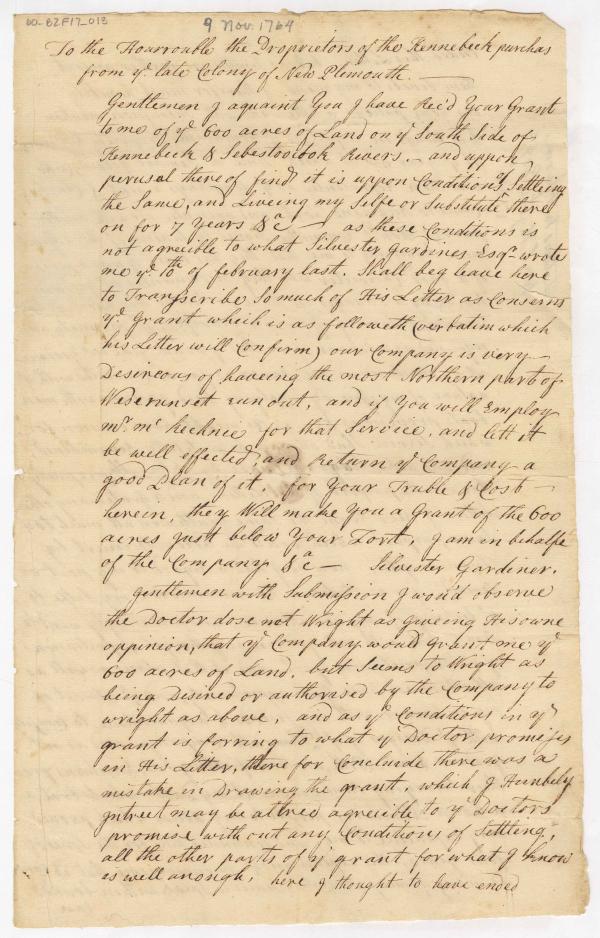 00-B2F17-013
9 Nov. 1764
To the Hounrouble the Proprietors of the Kennebeck purchas
from ye late Colony of New Plemouth.
Gentlemen J aquaint You J have Rec'd Your Grant
to me of ye 600 acres of Land on ye South Side of
Kennebeck & Sebestoocook Rivers. and uppon
perusal there of find it is uppon Conditions of Settleing
the Same, and Liveing my Selfe or Substitute there
on for 7 Years &c as these Conditions is
not agreible to what Silvester Gardiner Esqr wrote
me ye 10th of february last. Shall beg leave here
to Transscribe So much of His Letter as Conserns
ye Grant which is as followeth (verbatim which
his Letter will Confirm) our Company is very
Desireous of haveing the most Northern part of
Weserunset run out, and if You will Employ
mr. mc kechnie for that Service, and lett it
be well effected, and Return ye Company a
good Plan of it, for Your Truble & Cost
herein, they Will make You a Grant of the 600
acres just below Your Fort, J am in behalfe
of the Company &c Silvester Gardiner.
gentlemen with Submission J wou'd observe
the Doctor dose not Wright as giveing His owne
oppinion, that ye Company would Grant me ye
600 acres of Land, but Seems to Wright as
being Desired or authorised by the Company to
wright as above, and as ye Conditions in ye
grant is forring to what ye Doctor promises
in His Litter, there for Concluide there was a
mistake in Drawing the grant, which J Humbely
jntreet may be altred agreible to ye Doctors
promise with out any Conditions of Settling,
all the other parts of ye grant for what J know
is well anongh, here J thought to have ended